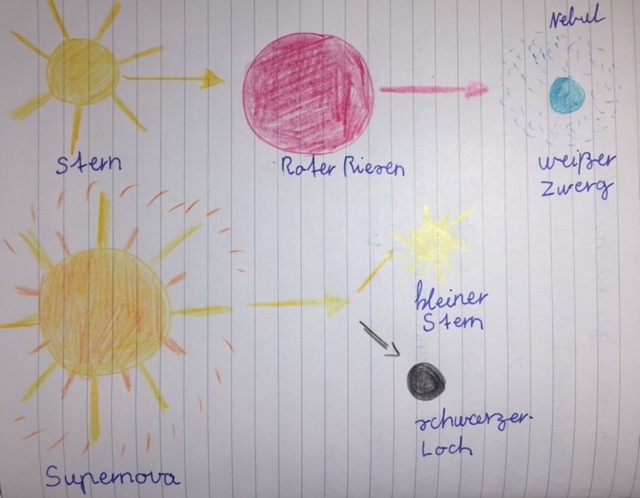 Nebul
Stern
Roter Riesen
weißer
Zwerg
kleiner
Stern
schwarzer-
Loch
Supernova